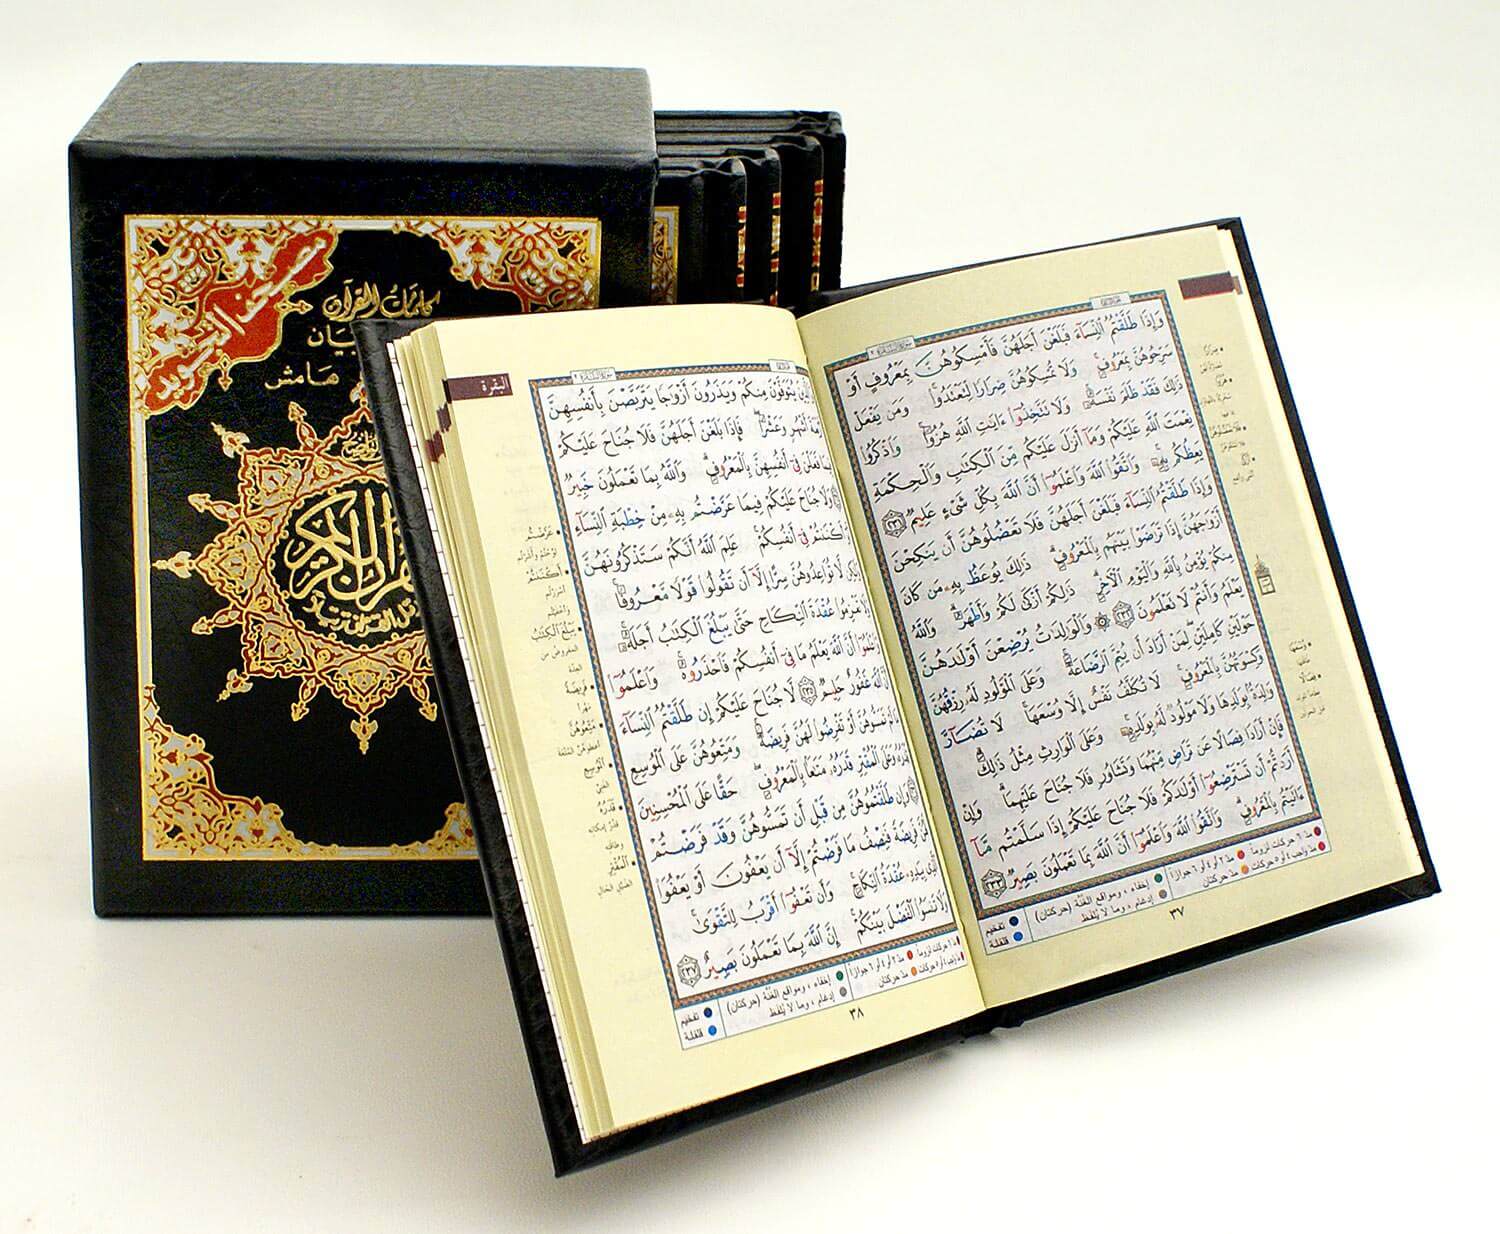 مصحف التجويد
كلمات القرآن
القرآن الكريم
ورتل القرآن ترتيلا
هامش
وَإِذَا طَلَّقْتُمُ النِّسَاءَ فَبَلَغْنَ أَجَلَهُنَّ فَأَمْسِكُوهُنَّ بِمَعْرُوفٍ أَوْ
سَرِّحُوهُنَّ بِمَعْرُوفٍ وَلَا تُمْسِكُوهُنَّ ضِرَارًا لِتَعْتَدُوا وَمَن يَفْعَلْ
ذَٰلِكَ فَقَدْ ظَلَمَ نَفْسَهُ وَلَا تَتَّخِذُوا ءَايَٰتِ اللَّهِ هُزُوًا وَاذْكُرُوا
نِعْمَتَ اللَّهِ عَلَيْكُمْ وَمَا أَنزَلَ عَلَيْكُم مِّنَ الْكِتَٰبِ وَالْحِكْمَةِ
يَعِظُكُم بِهِ وَاتَّقُوا اللَّهَ وَاعْلَمُوا أَنَّ اللَّهَ بِكُلِّ شَيْءٍ عَلِيمٌ ٢٣١
وَإِذَا طَلَّقْتُمُ النِّسَاءَ فَبَلَغْنَ أَجَلَهُنَّ فَلَا تَعْضُلُوهُنَّ أَن يَنكِحْنَ
أَزْوَٰجَهُنَّ إِذَا تَرَٰضَوْا بَيْنَهُم بِالْمَعْرُوفِ ذَٰلِكَ يُوعَظُ بِهِ مَن كَانَ
مِنكُمْ يُؤْمِنُ بِاللَّهِ وَالْيَوْمِ الْآخِرِ ذَٰلِكُمْ أَزْكَىٰ لَكُمْ وَأَطْهَرُ وَاللَّهُ
يَعْلَمُ وَأَنتُمْ لَا تَعْلَمُونَ ٢٣٢ وَالْوَٰلِدَٰتُ يُرْضِعْنَ أَوْلَٰدَهُنَّ
حَوْلَيْنِ كَامِلَيْنِ لِمَنْ أَرَادَ أَن يُتِمَّ الرَّضَاعَةَ وَعَلَى الْمَوْلُودِ لَهُ رِزْقُهُنَّ
وَكِسْوَتُهُنَّ بِالْمَعْرُوفِ لَا تُكَلَّفُ نَفْسٌ إِلَّا وُسْعَهَا لَا تُضَارَّ
وَٰلِدَةٌ بِوَلَدِهَا وَلَا مَوْلُودٌ لَّهُ بِوَلَدِهِ وَعَلَى الْوَارِثِ مِثْلُ ذَٰلِكَ
فَإِنْ أَرَادَا فِصَالًا عَن تَرَاضٍ مِّنْهُمَا وَتَشَاوُرٍ فَلَا جُنَاحَ عَلَيْهِمَا وَإِنْ
أَرَدتُّمْ أَن تَسْتَرْضِعُوا أَوْلَٰدَكُمْ فَلَا جُنَاحَ عَلَيْكُمْ إِذَا سَلَّمْتُم مَّا
ءَاتَيْتُم بِالْمَعْرُوفِ وَاتَّقُوا اللَّهَ وَاعْلَمُوا أَنَّ اللَّهَ بِمَا تَعْمَلُونَ بَصِيرٌ ٢٣٣
مدّ ٦ حركات لزوماً مدّ ٢ أو ٤ أو ٦ جوازاً
مدّ واجب ٤ أو ٥ حركات مدّ حركتان
إخفاء، ومواقع الغنّة (حركتان)
إدغام، وما لا يُلفظ
تفخيم
قلقلة
٣٧
البقرة
يُتَوَفَّوْنَ مِنكُمْ وَيَذَرُونَ أَزْوَٰجًا يَتَرَبَّصْنَ بِأَنفُسِهِنَّ
أَشْهُرٍ وَعَشْرًا فَإِذَا بَلَغْنَ أَجَلَهُنَّ فَلَا جُنَاحَ عَلَيْكُمْ
فِيمَا فَعَلْنَ فِي أَنفُسِهِنَّ بِالْمَعْرُوفِ وَاللَّهُ بِمَا تَعْمَلُونَ خَبِيرٌ
وَلَا جُنَاحَ عَلَيْكُمْ فِيمَا عَرَّضْتُم بِهِ مِنْ خِطْبَةِ النِّسَاءِ
أَوْ أَكْنَنتُمْ فِي أَنفُسِكُمْ عَلِمَ اللَّهُ أَنَّكُمْ سَتَذْكُرُونَهُنَّ
وَلَٰكِن لَّا تُوَاعِدُوهُنَّ سِرًّا إِلَّا أَن تَقُولُوا قَوْلًا مَّعْرُوفًا
وَلَا تَعْزِمُوا عُقْدَةَ النِّكَاحِ حَتَّىٰ يَبْلُغَ الْكِتَٰبُ أَجَلَهُ
وَاعْلَمُوا أَنَّ اللَّهَ يَعْلَمُ مَا فِي أَنفُسِكُمْ فَاحْذَرُوهُ وَاعْلَمُوا
أَنَّ اللَّهَ غَفُورٌ حَلِيمٌ ٢٣٥ لَّا جُنَاحَ عَلَيْكُمْ إِن طَلَّقْتُمُ النِّسَاءَ
مَا لَمْ تَمَسُّوهُنَّ أَوْ تَفْرِضُوا لَهُنَّ فَرِيضَةً وَمَتِّعُوهُنَّ عَلَى الْمُوسِعِ
قَدَرُهُ وَعَلَى الْمُقْتِرِ قَدَرُهُ مَتَٰعًا بِالْمَعْرُوفِ حَقًّا عَلَى الْمُحْسِنِينَ
وَإِن طَلَّقْتُمُوهُنَّ مِن قَبْلِ أَن تَمَسُّوهُنَّ وَقَدْ فَرَضْتُمْ
لَهُنَّ فَرِيضَةً فَنِصْفُ مَا فَرَضْتُمْ إِلَّا أَن يَعْفُونَ أَوْ يَعْفُوَا
الَّذِي بِيَدِهِ عُقْدَةُ النِّكَاحِ وَأَن تَعْفُوا أَقْرَبُ لِلتَّقْوَىٰ
وَلَا تَنسَوُا الْفَضْلَ بَيْنَكُمْ إِنَّ اللَّهَ بِمَا تَعْمَلُونَ بَصِيرٌ ٢٣٧
عَرَّضْتُم
أَكْنَنتُمْ
يَبْلُغَ الْكِتَٰبُ
المفروض من
العدّة
فَرِيضَةً
مهراً
مَتِّعُوهُنَّ
الْمُوسِعِ
الغنيّ
قَدَرُهُ
قدر إمكانه
وطاقته
الْمُقْتِرِ
مدّ ٢ أو ٤ أو ٦ جوازاً
مدّ حركتان
إخفاء، ومواقع الغنّة (حركتان)
إدغام، وما لا يُلفظ
تفخيم
قلقلة
٣٨